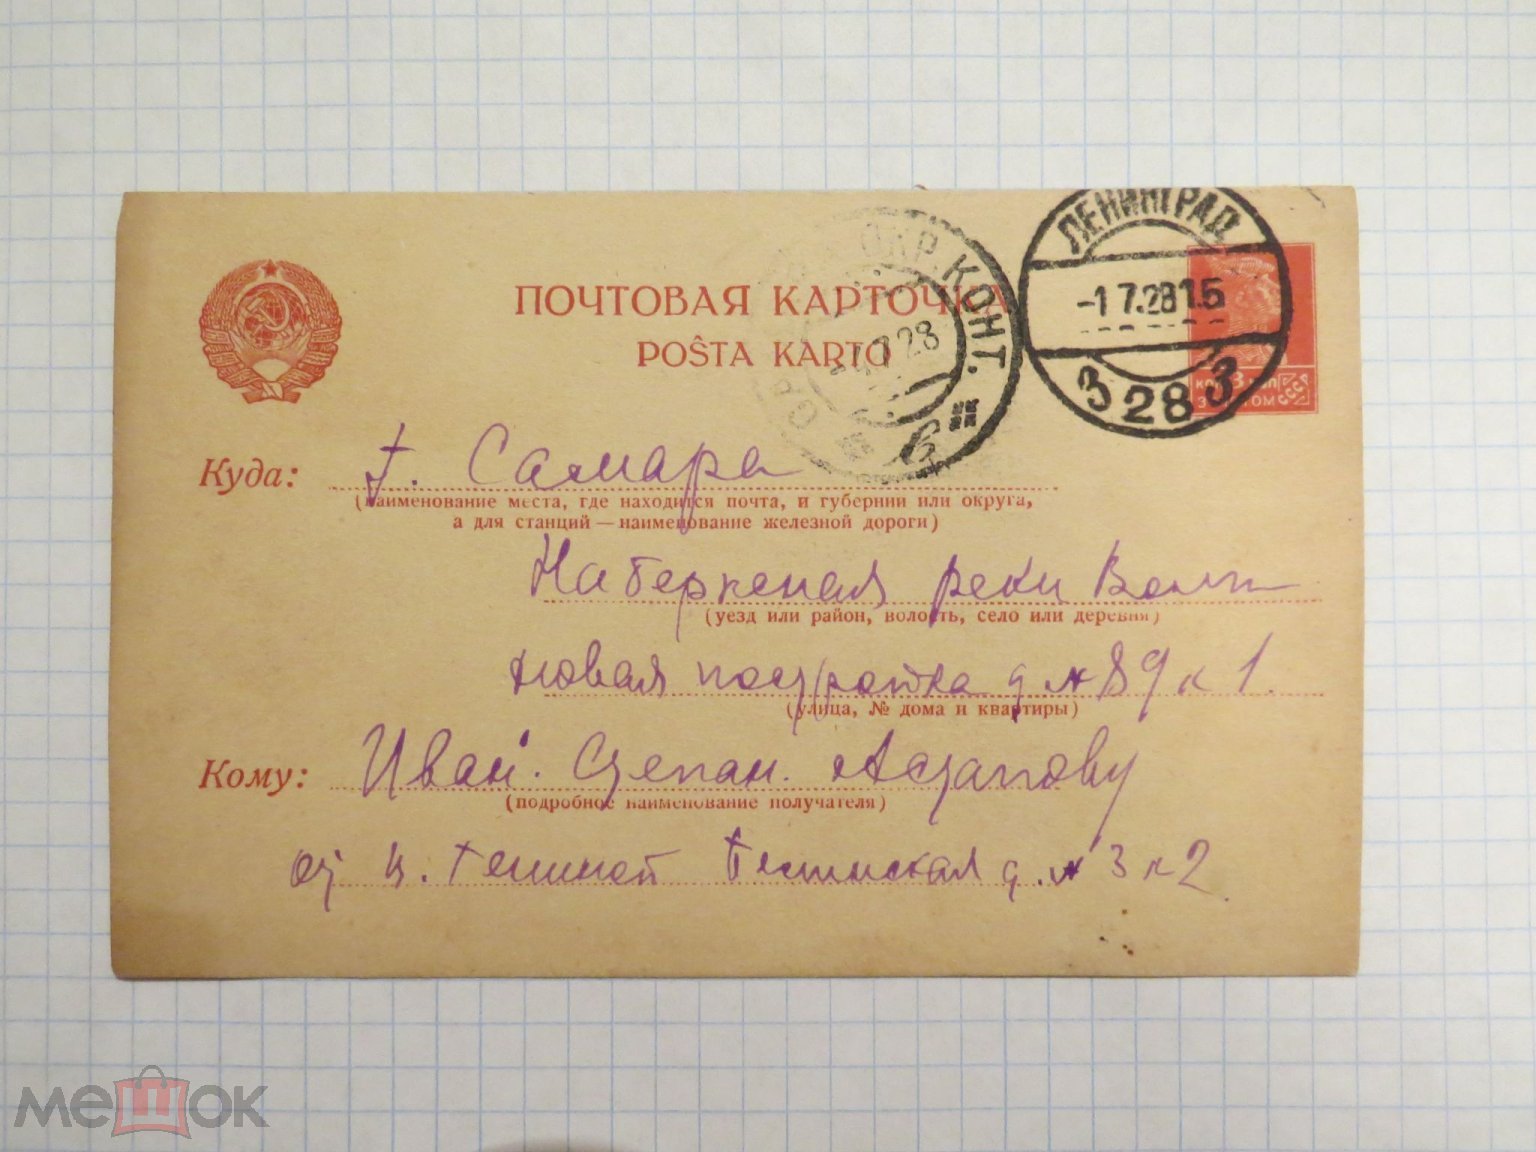 ПОЧТОВАЯ КАРТОЧКА
POŜTA KARTO
ОКР. КОНТ.
7 28
"б"
ЛЕНИНГРАД
-1 7.28 15
3 28 3
КОП. 3 ЗОЛОТОМ СССР
Куда: г. Самара
(наименование места, где находится почта, и губернии или округа,
а для станций — наименование железной дороги)
Набережная реки Волги
(уезд или район, волость, село или деревня)
новая постройка д. № 89 к 1.
(улица, № дома и квартиры)
Кому: Иван. Степан. Астапову
(подробное наименование получателя)
от д. № 3 к 2.
мешок